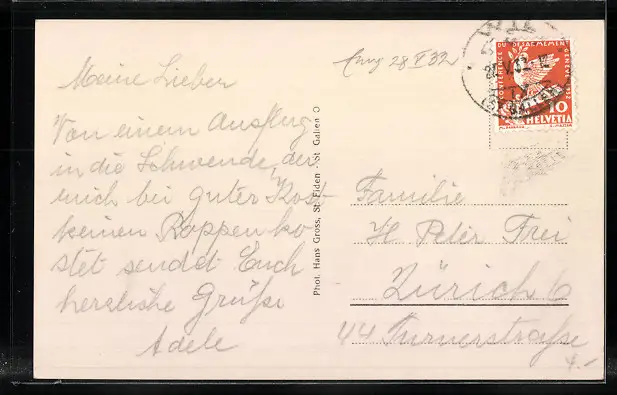 Meine Lieben
Von einem Ausflug
in die Schwende, der
mich bei guter Kost
keinen Rappen ko-
stet sendet Euch
herzliche Grüße
Adele
28 V 32
Phot. Hans Gross, St. Fiden - St. Gallen O
WIL
(ST. GALLEN)
CONFERENCE DU DESARMEMENT GENEVE 1932
10
HELVETIA
Familie
H Peter Frei
Zürich 6
44 Turnerstraße
4.-